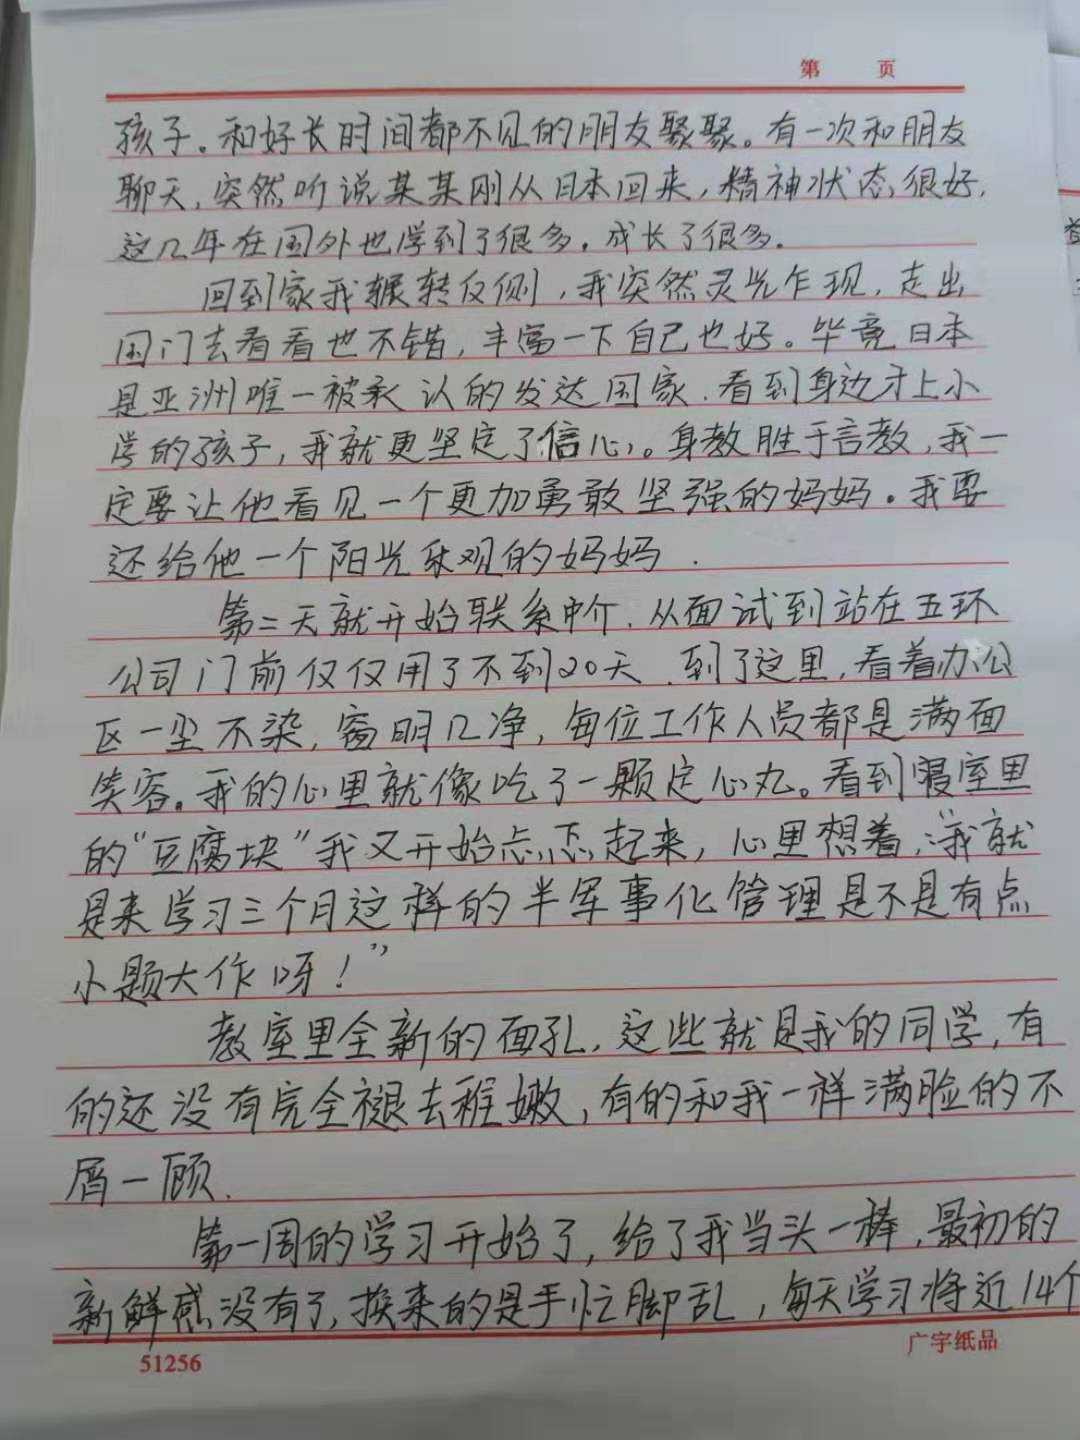 第 页
孩子。和好长时间都不见的朋友聚聚。有一次和朋友
聊天,突然听说某某刚从日本回来,精神状态很好,
这几年在国外也学到了很多,成长了很多.
回到家我辗转反侧,我突然灵光乍现,走出
国门去看看也不错,丰富一下自己也好。毕竟日本
是亚洲唯一被承认的发达国家.看到身边才上小
学的孩子,我就更坚定了信心。身教胜于言教,我一
定要让他看见一个更加勇敢坚强的妈妈。我要
还给他一个阳光乐观的妈妈.
第二天就开始联系中介.从面试到站在五环
公司门前仅仅用了不到20天.到了这里,看着办公
区一尘不染,窗明几净,每位工作人员都是满面
笑容。我的心里就像吃了一颗定心丸。看到寝室里
的“豆腐块”我又开始忐忑起来,心里想着,:“我就
是来学习三个月这样的半军事化管理是不是有点
小题大作呀!”
教室里全新的面孔,这些就是我的同学,有
的还没有完全褪去稚嫩,有的和我一样满脸的不
屑一顾.
第一周的学习开始了,给了我当头一棒,最初的
新鲜感没有了,换来的是手忙脚乱,每天学习将近14个
51256
广宇纸品